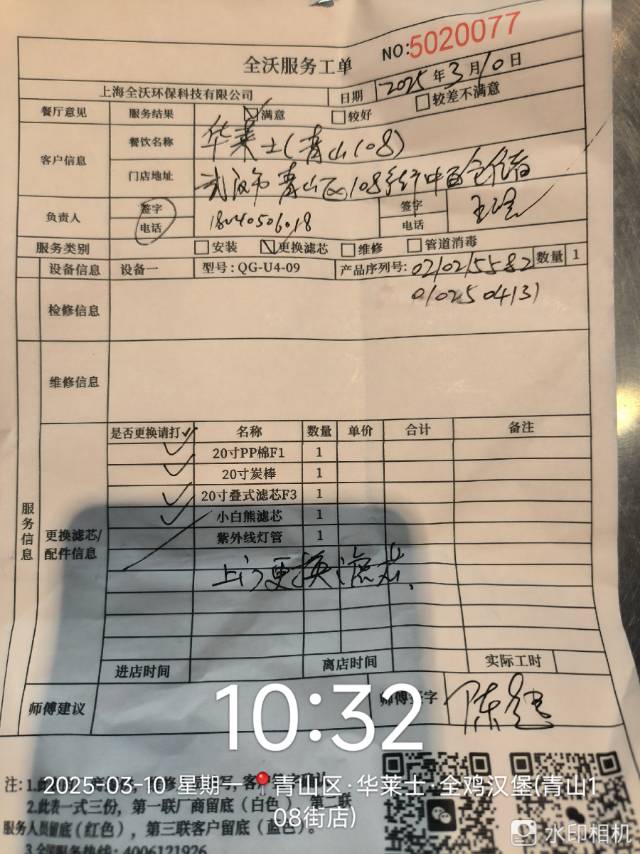 NO:5020077
全沃服务工单
上海全沃环保科技有限公司 日期 2025年3月10日
餐厅意见 服务结果 满意 较好 较差不满意
客户信息 餐饮名称 华莱士(青山108)
门店地址 武汉市青山区108街
负责人 签字 签字
电话 18040506018 电话
服务类别 安装 更换滤芯 维修 管道消毒
设备信息 设备一 型号:QG-U4-09 产品序列号: 0210215582 数量 1
0102504131
检修信息
维修信息
服务信息
更换滤芯/配件信息
是否更换请打✓ 名称 数量 单价 合计 备注
✓ 20寸PP棉F1 1
✓ 20寸炭棒 1
✓ 20寸叠式滤芯F3 1
✓ 小白熊滤芯 1
紫外线灯管 1
上门更换滤芯.
进店时间 离店时间 实际工时
师傅建议 师傅签字
10:32
2025-03-10 星期一 青山区·华莱士·全鸡汉堡(青山1
08街店)
2.此表一式三份，第一联厂商留底（白色），第二联
服务人员留底（红色），第三联客户留底（蓝色）。
3.全国服务热线: 4006121926
水印相机